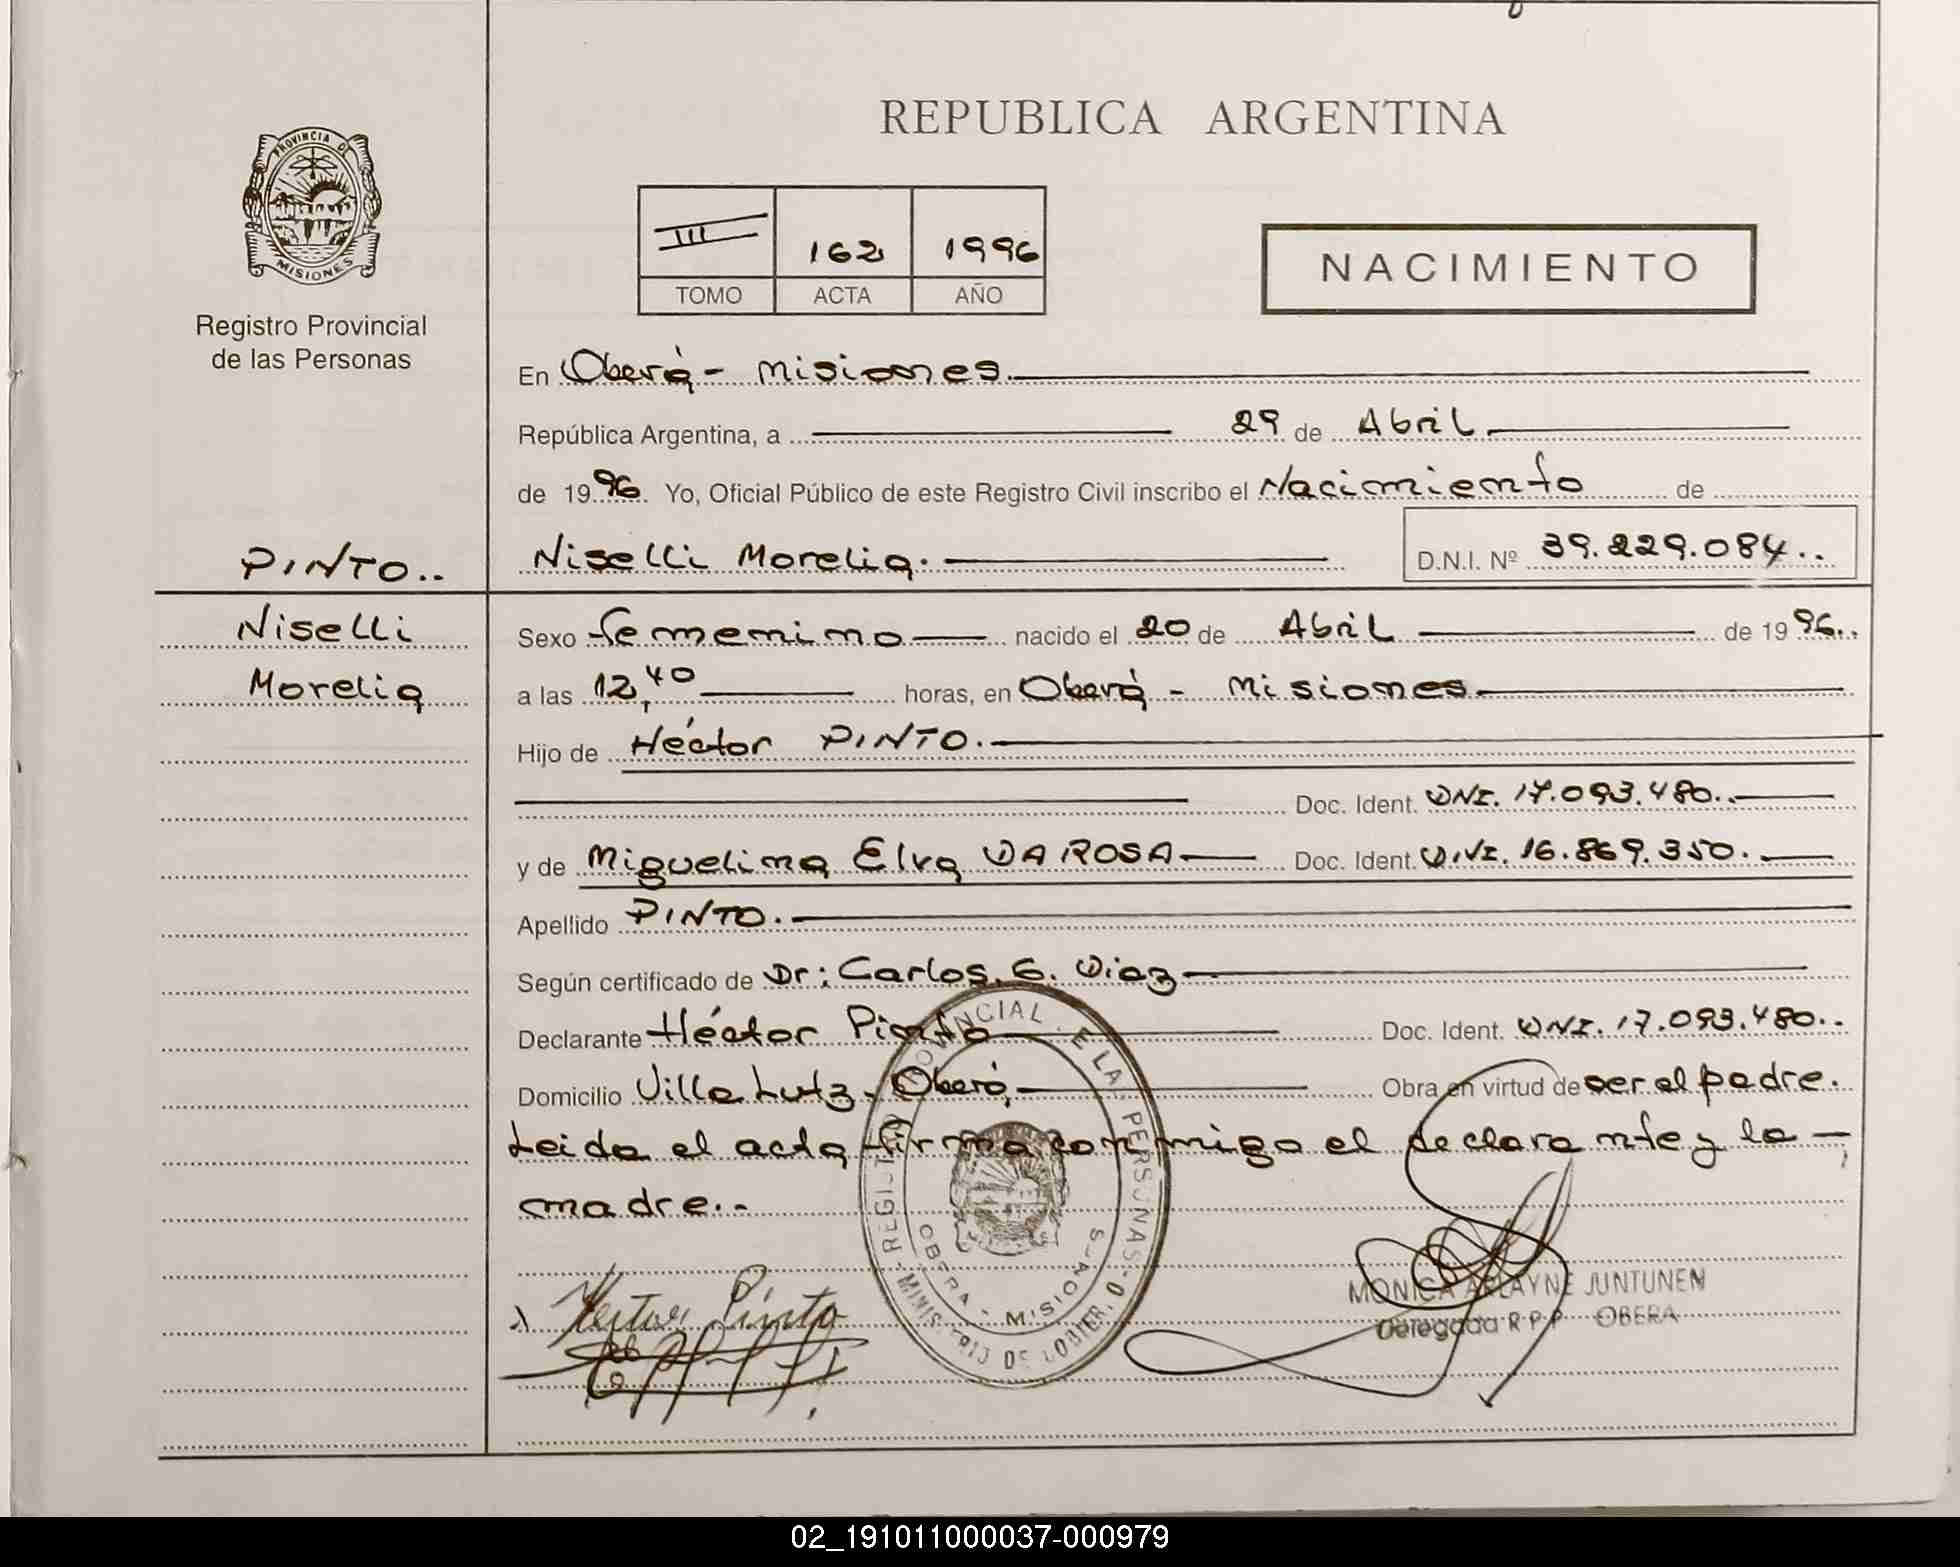 REPUBLICA ARGENTINA
PROVINCIA DE
MISIONES
Registro Provincial
de las Personas
III 162 1996
TOMO ACTA AÑO
NACIMIENTO
En Oberá - Misiones.
República Argentina, a 29 de Abril
de 19 96 Yo, Oficial Público de este Registro Civil inscribo el Nacimiento de
PINTO..
Niselli Morelia. D.N.I. Nº 39.229.084..
Niselli
Sexo femenino nacido el 20 de Abril de 19 96..
Morelia
a las 12,40 horas, en Oberá - Misiones.
Hijo de Héctor PINTO.
Doc. Ident. DNI. 17.093.480..
y de Miguelina Elva DA ROSA Doc. Ident. DNI. 16.869.350.
Apellido PINTO.
Según certificado de Dr: Carlos. G. Diaz
Declarante Héctor Pinto Doc. Ident. DNI. 17.093.480..
Domicilio Villa Lutz - Oberá, Obra en virtud de ser el padre.
Leida el acta firma conmigo el declarante y la
madre..
OBERA - MISIONES
Hector Pinto
MONICA ARLAYNE JUNTUNEN
Delegada R.P.P. OBERA
02_191011000037-000979